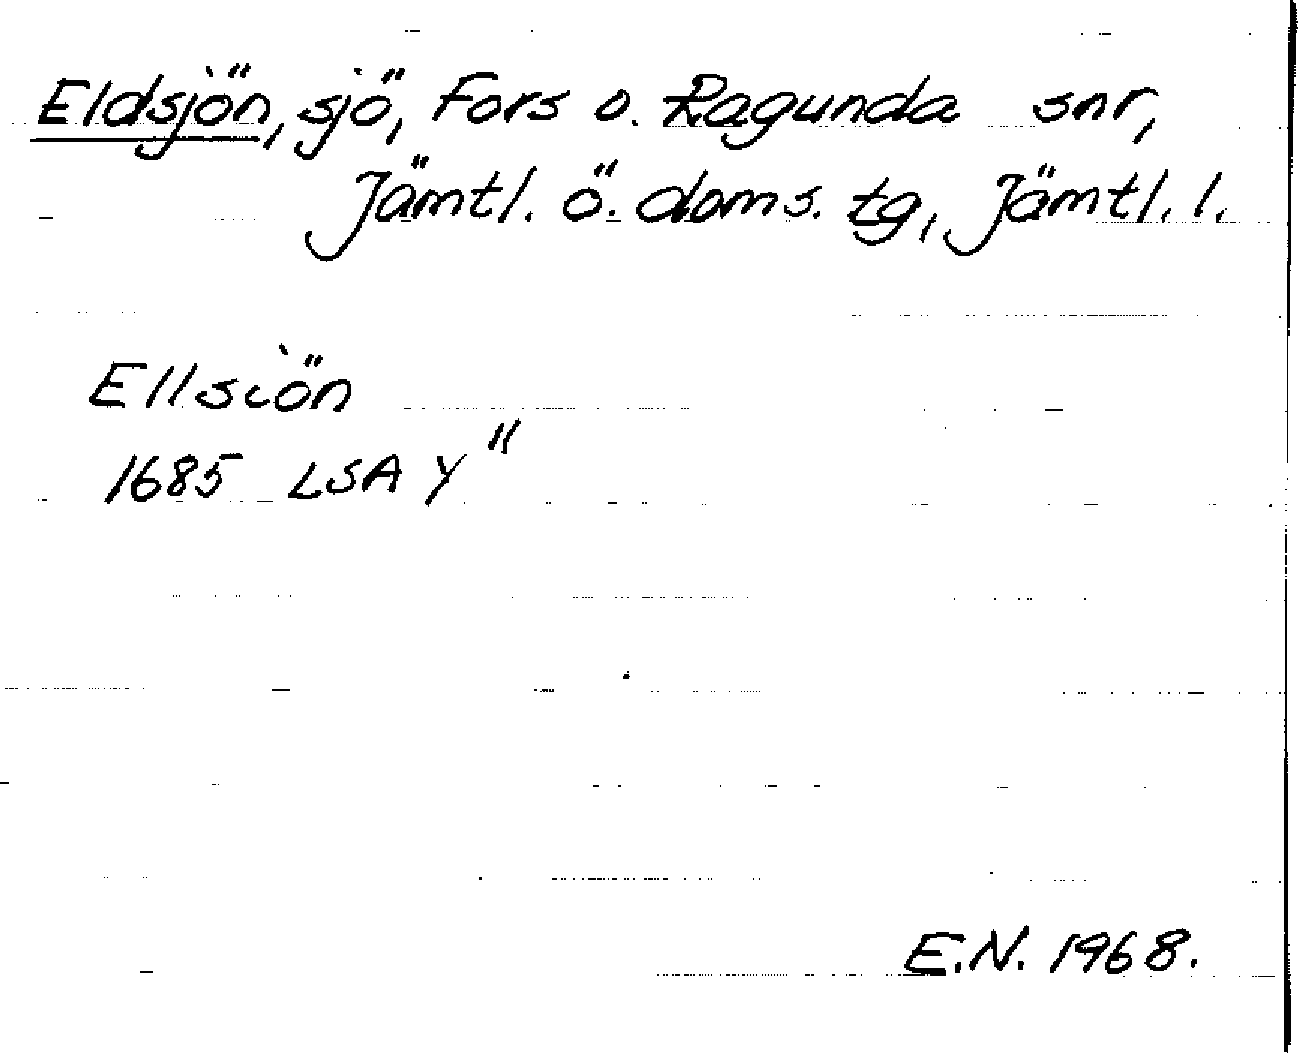 Eldsjön, sjö, Fors o. Ragunda snr,
Jämtl. ö. doms. tg, Jämtl. l.
Ellsiön
1685 LSA Y"
E.N. 1968.